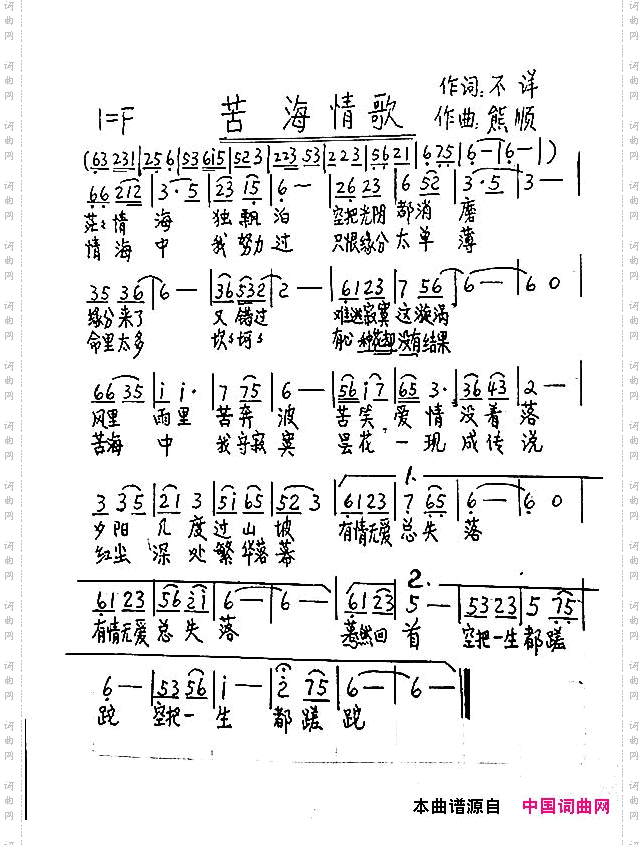 苦海情歌
作词:不详
1=F
作曲:熊顺
(63 231|25 6|53 6i5|52 3|223 53|2 2 3|56 21|6 75|6 —|6 —|)
66 212|3·5|23 15|6 —|26 23|6 52|3·5|3 —|
茫々情海 独飘泊 空把光阴都消磨
情海中 我努力过 只恨缘分太单薄
35 36|6 —|36 532|2 —|61 23|7 56|6 —|6 0|
缘分来了 又错过 难逃寂寞这漩涡
命里太多 坎々坷々 有心种花却没有结果
66 35|i i·|7 75|6 —|56 i7|65 3·|36 43|2 —|
风里雨里苦奔波 苦笑爱情没着落
苦海中 我守寂寞 昙花一现成传说
1.
3 35|21 3|5i 65|52 3|61 23|7 65|6 —|6 0|
夕阳几度过山坡 有情无爱总失落
红尘深处繁华落幕
2.
61 23|56 2i|6 —|6 —|61 23|5 —|53 23|5 75|
有情无爱总失落 蓦然回首 空把一生都蹉
6 —|53 56|i —|2 75|6 —|6 —‖
跎 空把一生都蹉跎
本曲谱源自 中国词曲网
词曲网